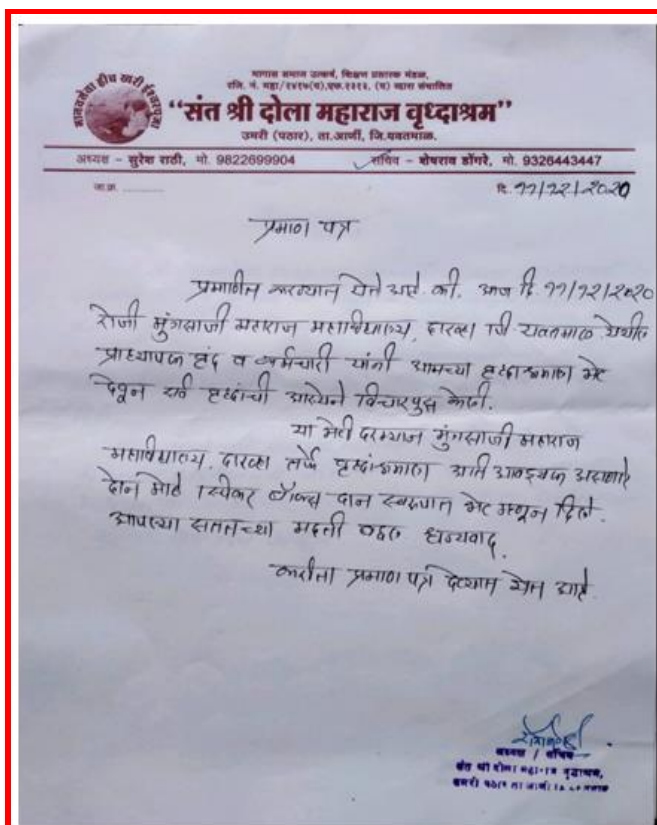 मानवसेवा हीच खरी ईश्वरपूजा
मागास समाज उत्कर्ष, शिक्षण प्रसारक मंडळ,
"संत श्री दोला महाराज वृध्दाश्रम"
उमरी (पठार), ता.आर्णी, जि.यवतमाळ.
अध्यक्ष - सुरेश राठी, मो. 9822699904 सचिव - शेषराव डोंगरे, मो. 9326443447
जा.क्र. दि. ११/१२/२०२०
प्रमाण पत्र
प्रमाणीत करण्यात येते आहे. की. आज दि. ११/१२/२०२०
रोजी मुंगसाजी महाराज महाविद्यालय, दारव्हा यवतमाळ येथील
प्राध्यापक वृंद व कर्मचारी यांनी आमच्या वृध्दाश्रमाला भेट
देवून सर्व वृध्दांची आस्थेने विचारपुस केली.
या भेटी दरम्यान मुंगसाजी महाराज
महाविद्यालय, दारव्हा तर्फे वृध्दाश्रमाला अति आवश्यक असणारे
दोन मोठे स्पिकर बॉक्स दान स्वरूपात भेट म्हणून दिले.
आपल्या सततच्या मदती बद्दल धन्यवाद.
करीता प्रमाण पत्र देण्यात येत आहे.
अध्यक्ष / सचिव
संत श्री दोला महाराज वृद्धाश्रम,